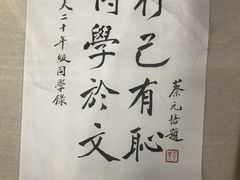 行己有恥
博學於文
大二十年級同學錄
蔡元培題